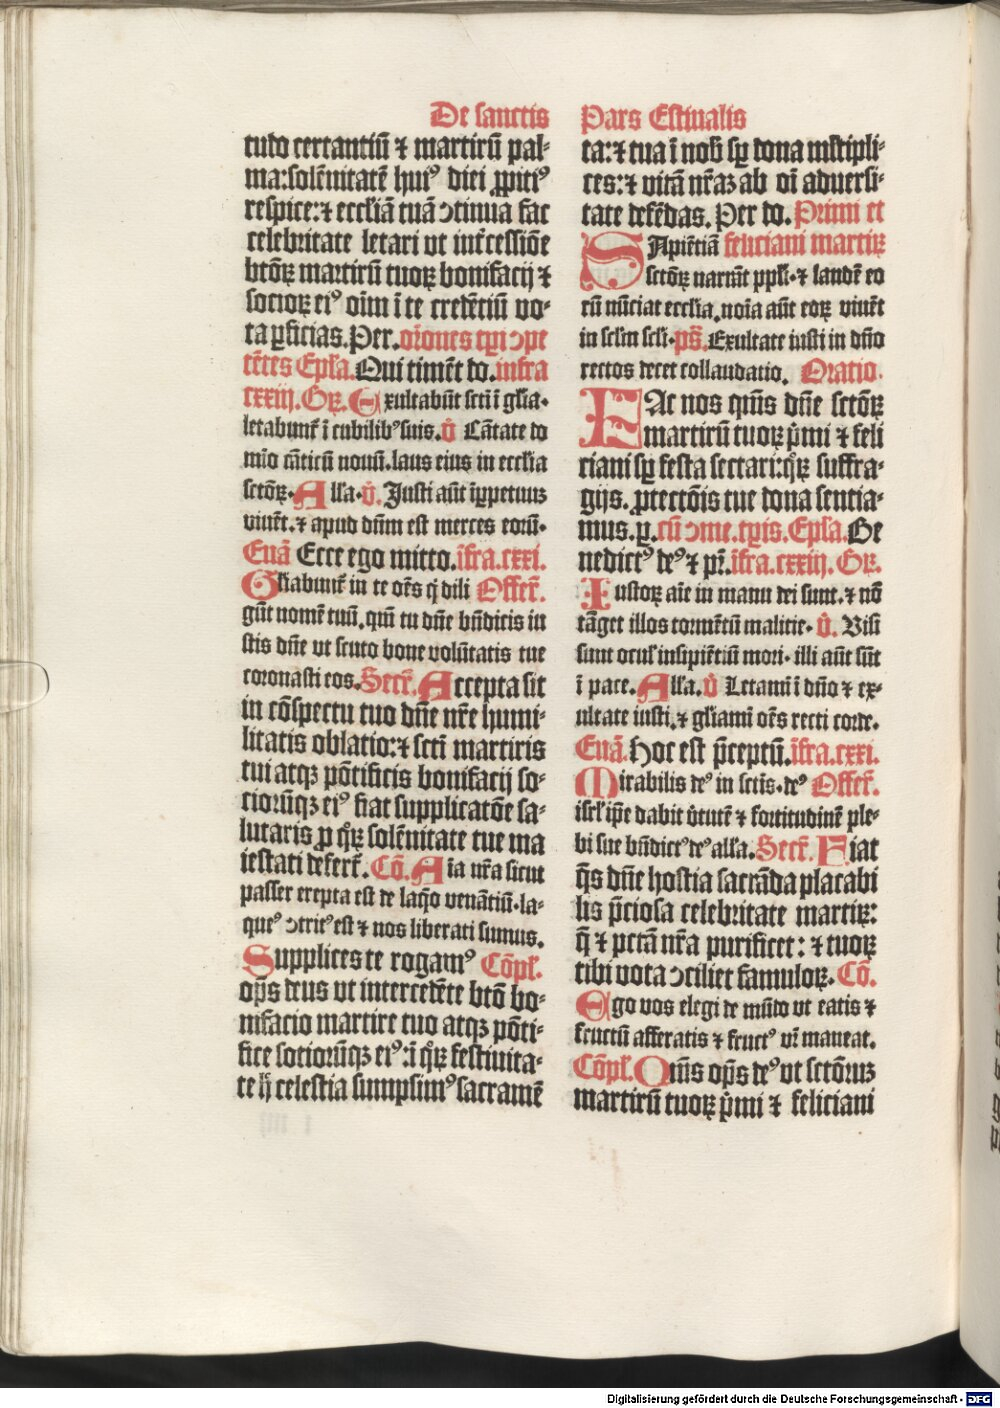 De sanctis
tudo certantiū ⁊ martirū pal-
ma:solēnitatē huiꝰ diei ꝓpitiꝰ
respice:⁊ eccliā tuā ↄtinua fac
celebritate letari vt int̄cessiōe
btōꝝ martirū tuoꝝ bonifacij ⁊
socioꝝ eiꝰ oīm ī te credētiū vo-
ta ꝑficias. Per. orōnes tp̄i ↄpe
tētes Ep̄la. Qui timēt do. infra
cxxiij. Gꝝ. Exultabūt sctī ī gl̄ia.
letabunt̄ ī cubilibꝰ suis. v̄ Cātate do
mīo cāticū nouū. laus eius in ecclīa
sctōꝝ. Alla. v̄. Justi aūt īꝑpetuuꝫ
viuēt. ⁊ apud dūm est merces eoꝝū.
Euā Ecce ego mitto. īfra.cxxi.
Gl̄iabunt̄ in te oēs q̄ dili Offer̄.
gūt nomē tuū, qm̄ tu dn̄e bn̄dicis iu
stis dn̄e vt scuto bone volūtatis tue
coronasti eos. Secr̄. Accepta sit
in cōspectu tuo dn̄e nr̄e humi-
litatis oblatio:⁊ sctī martiris
tui atqꝫ pōtificis bonifacij so-
ciorūqꝫ eiꝰ fiat supplicatōe sa-
lutaris ꝓ qͦꝝ solēnitate tue ma
iestati defert̄. Cō. Aīa nr̄a sicut
passer erepta est de laq̄o venātiū. la-
queꝰ ↄtritꝰ est ⁊ nos liberati sumus.
Supplices te rogamꝰ Cōpl̄.
op̄s deus vt intercedēte btō bo-
nifacio martire tuo atqꝫ pōti-
fice sociorūqꝫ eiꝰ:ī qͦꝝ festiuita-
te h̄ celestia sumpsimꝰ sacramē
Pars Estiualis
ta:⁊ tua ī nob̄ sp̄ dona ml̄tipli-
ces:⁊ vitā nr̄aꝫ ab oī aduersi-
tate defēdas. Per do. Primi et
SApiētiā feliciani martiꝝ
sctōꝝ narrāt ppl̄i. ⁊ laudē eo
rū nūciat ecclia, noīa aūt eoꝝ viuēt
in sclm̄ scli. pš. Exultate iusti in dn̄o
rectos decet collaudatio. Oratio.
FAc nos qm̄s dn̄e sctōꝝ
martirū tuoꝝ p̄mi ⁊ feli
ciani sp̄ festa sectari:qͦꝝ suffra-
gijs. ꝓtectōis tue dona sentia-
mus. ꝑ. cū ↄme. tp̄is. Ep̄la. Be
nedictꝰ deꝰ ⁊ pr̄. īfra.cxxiij. Gꝝ.
Iustoꝝ aīe in manu dei sunt. ⁊ nō
tāget illos tormētū malicie. v̄. Visi
sunt oculꝭ insipiētiū mori. illi aūt sūt
ī pace. Alla. v̄ Letamī ī dn̄o ⁊ ex-
ultate iusti. ⁊ gl̄iamī oēs recti corde.
Euā. Hoc est p̄ceptū. īfra.cxxi.
Mirabilis deꝰ in sctis̄. deꝰ Offer̄.
isrl̄ ip̄e dabit v̄tutē ⁊ fortitudinē ple-
bi sue bn̄dictꝰ deꝰ alla. Secr̄. Fiat
q̄s dn̄e hostia sacrāda placabi
lis p̄ciosa celebritate martiꝝ:
q̄ ⁊ pctā nr̄a purificet: ⁊ tuoꝝ
tibi vota ↄciliet famuloꝝ. Cō.
Ego vos elegi de mūdo vt eatis ⁊
fructū afferatis ⁊ fructꝰ vr̄ maneat.
Cōpl̄. Qm̄s op̄s deꝰ vt sctōruꝫ
martirū tuoꝝ p̄mi ⁊ feliciani
Digitalisierung gefördert durch die Deutsche Forschungsgemeinschaft - DFG